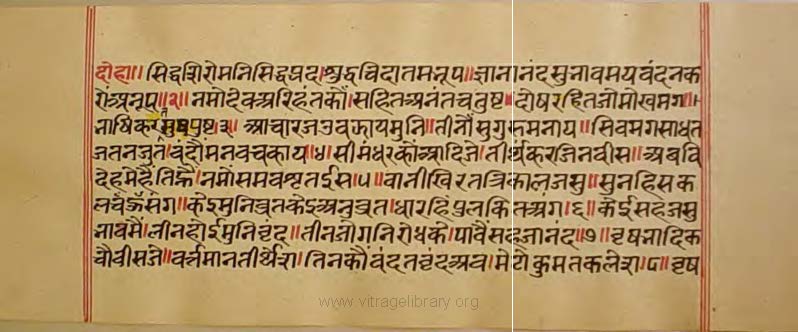 दोहा॥ सिद्धशिरोमनिसिद्धप्रद।शुद्धचिदातमनूप॥ज्ञानानंदसुनावमयवंदनक
रौंअनूप॥२॥नमोदेवअरिहंतकौं।सहितअनंतचतुष्ट॥दोषरहितजोमोखमग।
आचारजउवझायमुनि॥तीनौंसुगुरुमनाय॥सिवमगसाधत
जतनजुत।वंदौमनवचकाय॥४॥सीमंधरकोंआदिजे।तीर्थंकरजिनवीस॥अबवि
देहमेहैतिन्हैं।नमोसमवश्रृतईस॥५॥वानीखिरतत्रिकालजसु॥सुनहिसक
कोईमुनिव्रतकोईअनुव्रत।धारहिंपुलकितअंग।६॥कोईसहजसु
नावमैं।लीनहोईमुनिवृंद॥तीनजोगनिरोधके।पावैसहजानंद॥७॥वृषनादिक
चौवीसजे॥वर्तमानतीर्थेश।तिनकौंवंदतवृंदअब।मेटोकुमतकलेश।८॥वृष
www.vitragelibrary.org